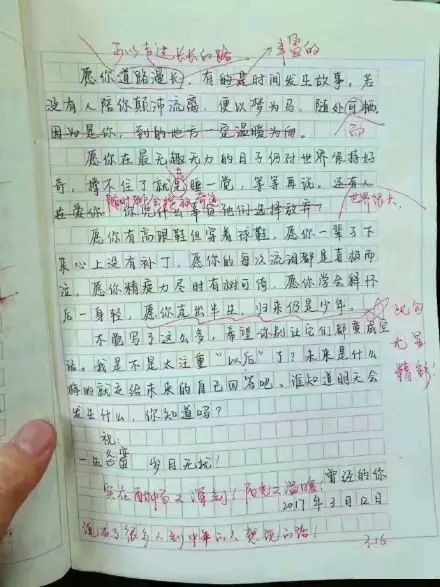 可以走过长长的路
丰富的
愿你道路漫长,有的是时间发生故事。若
没有人陪你颠沛流离,便以梦为马,随处可栖。
因为是你,到的地方一定温暖为向。
而
愿你在最无趣无力的日子仍对世界保持好
奇,撑不住了就先睡一觉,等等再说。还有人
在爱你,你凭什么辜负他们选择放弃?
世界很大,
愿你有高跟鞋但穿着球鞋,愿你一辈子下
来心上没有补丁,愿你的每次流泪都是喜极而
泣,愿你精疲力尽时有树可倚,愿你学会释怀
后一身轻,愿你走出半生,归来仍是少年。
此句
尤显
精彩!
不能写了这么多,希望你别让它们都变成空
话。我是不是太注重“以后”了?未来是什么
样的就交给未来的自己回答吧。谁知道明天会
发生什么,你知道吗?
祝:
一生 岁月无忧!
实在 又深刻!阳光又温暖,
曾经的你
2017年3月12日
很多人到中年的人
3.16